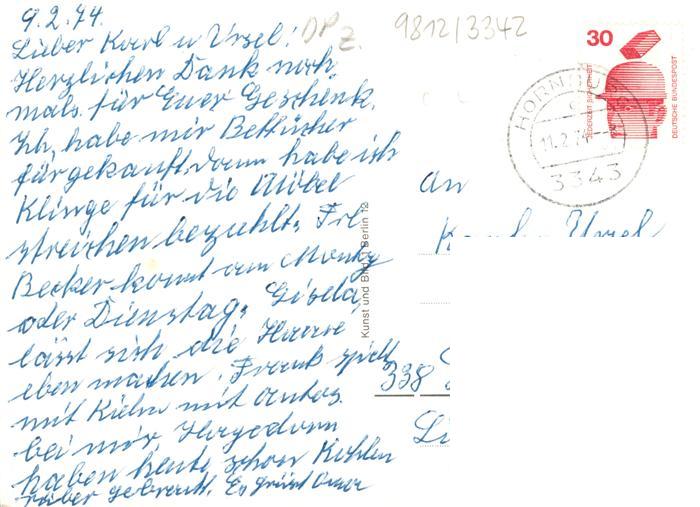 9.2.74.
Lieber Karl u Ursel!
Herzlichen Dank noch
mals für Euer Geschenk.
Ich habe mir Bettücher
für gekauft, dann habe ich
Klinge für die Möbel
streichen bezahlt. Frl.
Becker kommt am Montag
oder Dienstag. Gisela,
lässt sich die Haare
eben machen. Frank spielt
mit Kielm mit Autos.
bei mir. Hagedorn
haben heute schon Kohlen
rüber gebracht. Es grüsst Oma
9812/3342
30
JEDERZEIT SICHERHEIT
DEUTSCHE BUNDESPOST
HORNBURG
11.2.74
3343
An
Karl u Ursel
Kunst und Bild, Berlin 12
338